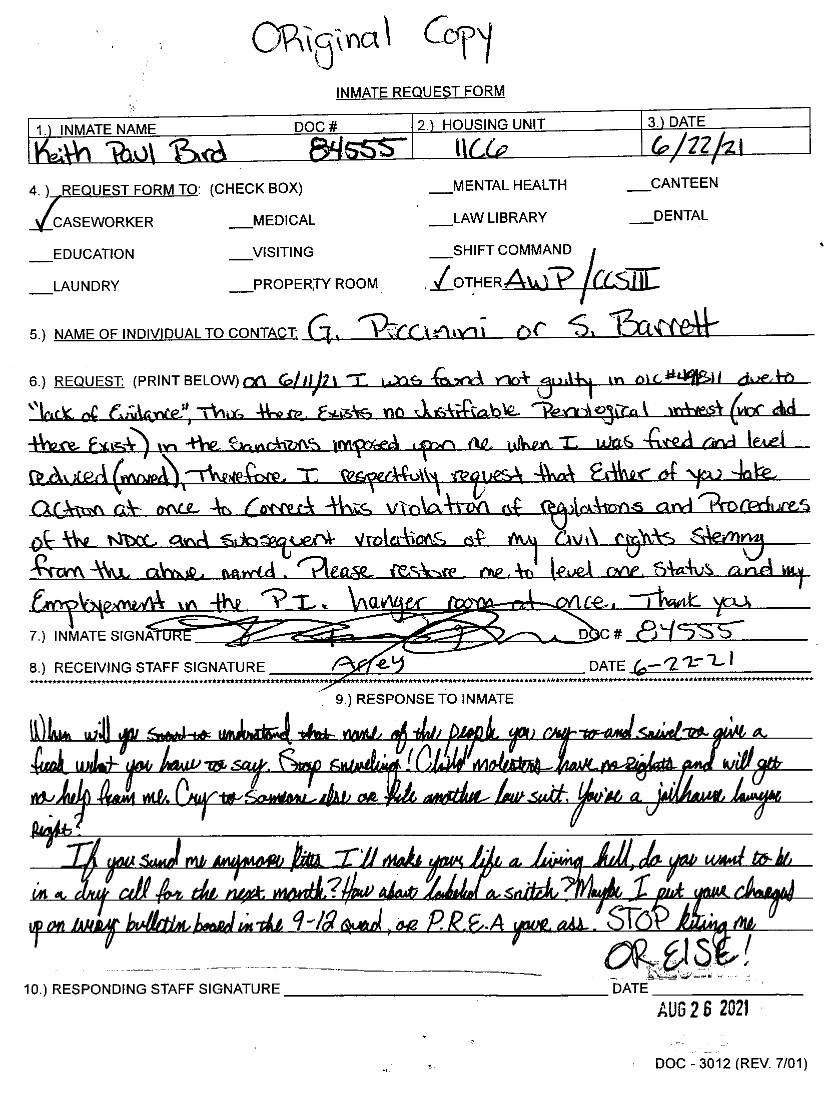 ORiginal Copy
INMATE REQUEST FORM
1.) INMATE NAME DOC # 2.) HOUSING UNIT 3.) DATE
Keith Paul Bird 84555 11C6 6/22/21
4.) REQUEST FORM TO: (CHECK BOX) ___MENTAL HEALTH ___CANTEEN
✓CASEWORKER ___MEDICAL ___LAW LIBRARY ___DENTAL
___EDUCATION ___VISITING ___SHIFT COMMAND
___LAUNDRY ___PROPERTY ROOM ✓OTHER AWP/CCSIII
5.) NAME OF INDIVIDUAL TO CONTACT: G. Piccinini or S. Barrett
6.) REQUEST: (PRINT BELOW) on 6/11/21 I was found not guilty in OIC # due to
"lack of Evidance", Thus there Exists no Justifiable Penological intrest (nor did
there Exist) in the Sanctions imposed upon me when I was fired and level
reduced (moved), Therefore I respectfully request that Either of you take
Action at once to Correct this violation of regulations and Procedures
of the NDOC and subsequent violations of my Civil rights Stemng
from the above named. Please restore me to level one Status and my
Employement in the P.I. hanger room at once. Thank you
7.) INMATE SIGNATURE DOC # 84555
8.) RECEIVING STAFF SIGNATURE DATE 6-22-21
9.) RESPONSE TO INMATE
When will you understand that none of the people you cry to and snivel to give a
fuck what you have to say. Stop sniveling! Child molestors have no Rights and will get
no help from me. Cry to someone else or file another law suit. You're a jailhouse lawyer
Right?
If you send me anymore Kites I'll make your life a living hell, do you want to be
in a dry cell for the next month? How about labeled a snitch? Maybe I put your charges
up on every bulletin board in the 9-12 quad, or P.R.E.A your ass. STOP kiting me
OR ELSE!
10.) RESPONDING STAFF SIGNATURE DATE
AUG 26 2021
DOC - 3012 (REV. 7/01)